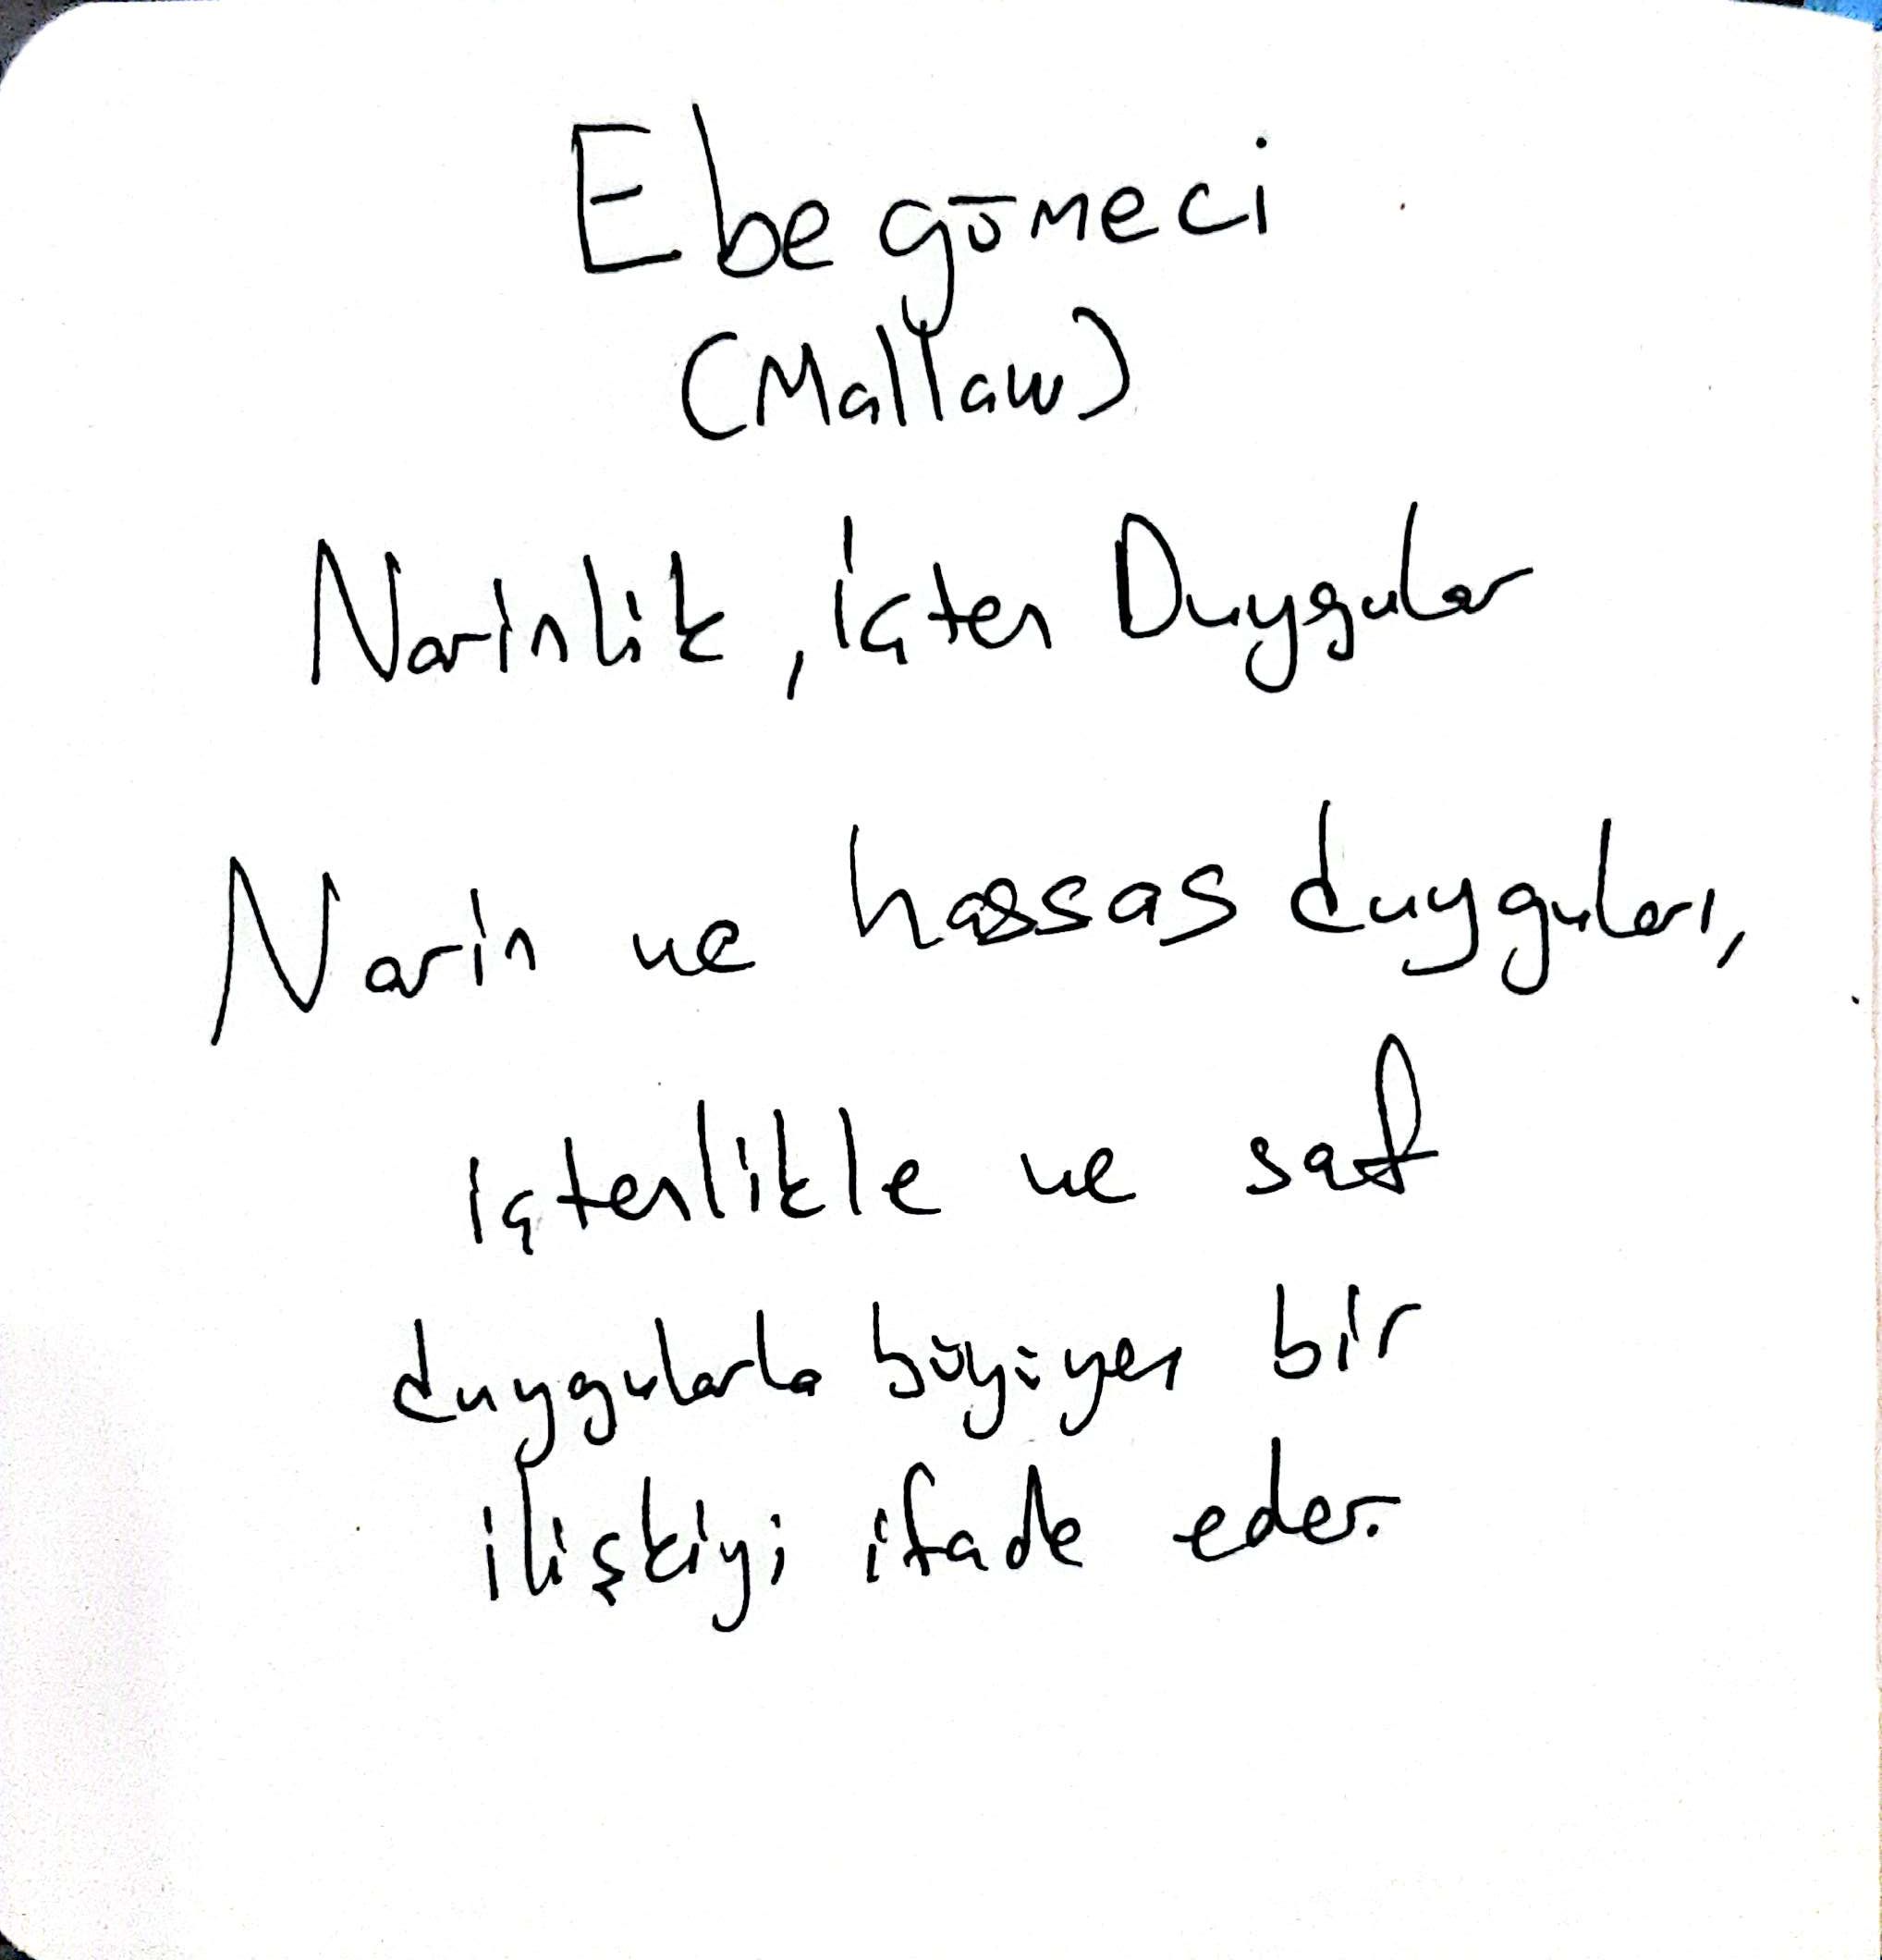 Ebegömeci
(Mallaw)
Narinlik, İçten Duygular
Narin ve hassas duyguları,
içtenlikle ve saf
duygularla büyüyen bir
ilişkiyi ifade eder.